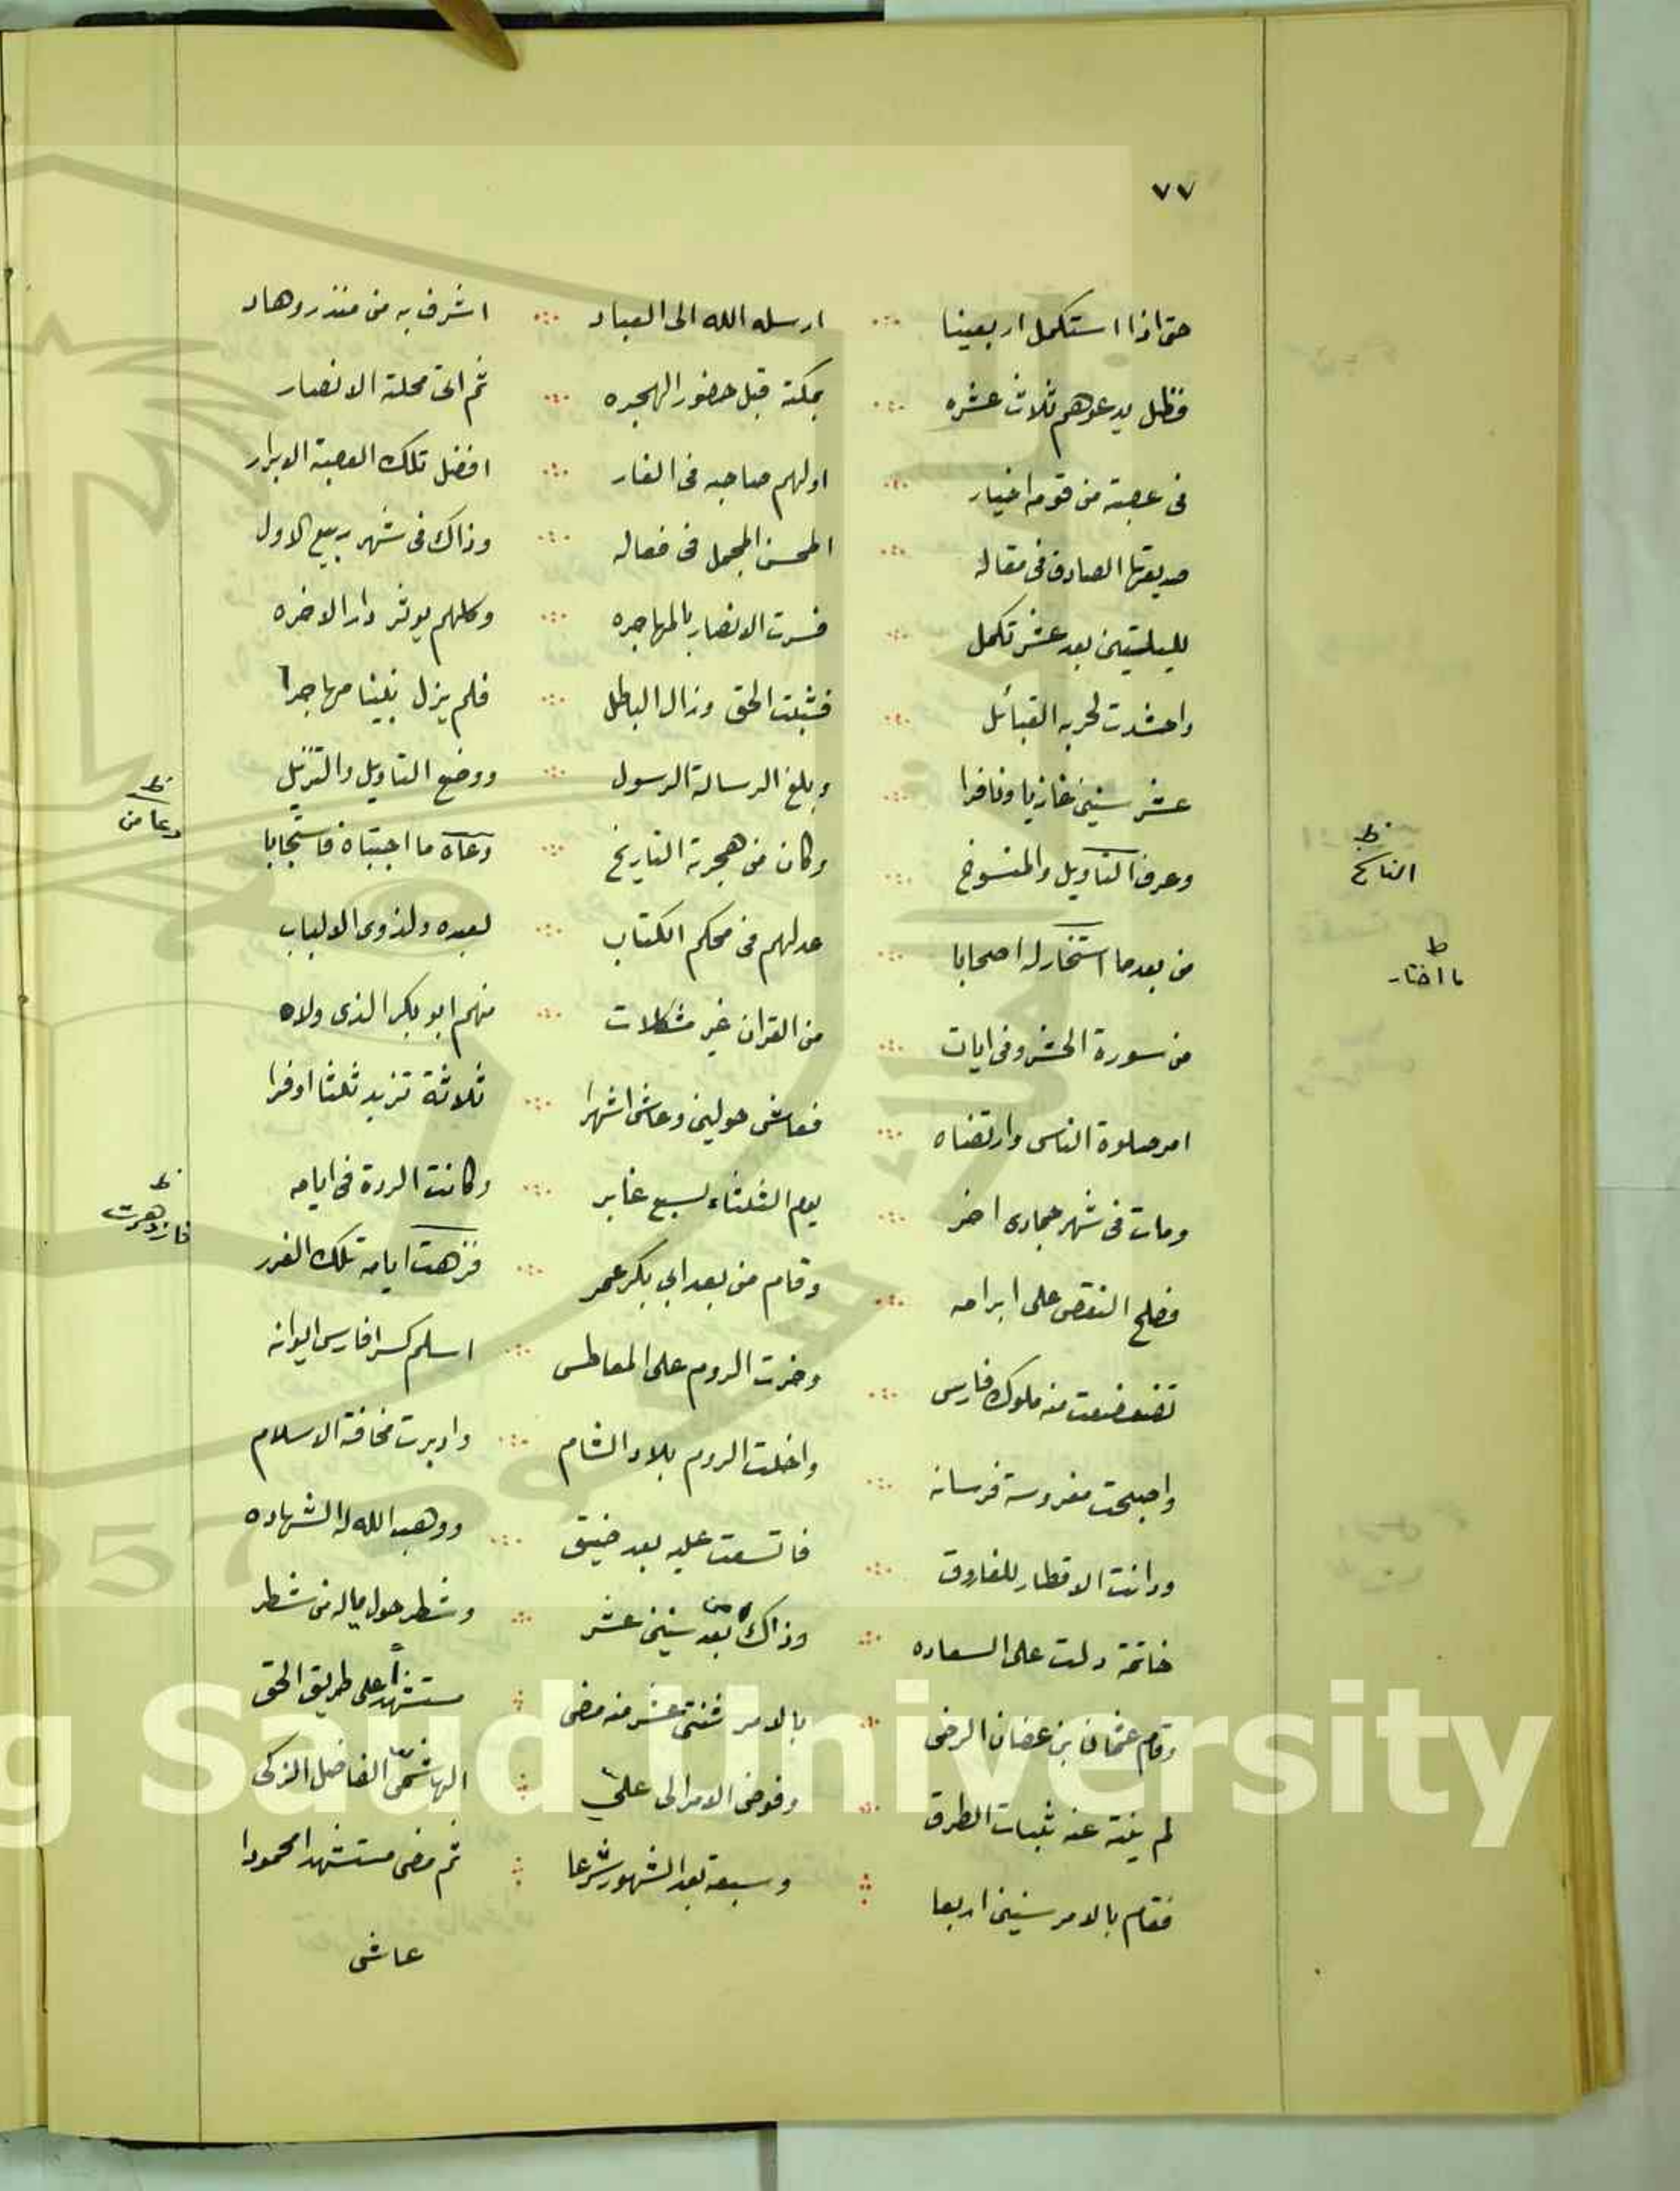 ٧٧
حتى اذا استكمل اربعينا ∴ ارسله الله الى العباد ∴ اشرف به من منذر وهاد
فظل يدعوهم ثلاث عشره ∴ بمكة قبل حضور الهجره ∴ ثم اتى محلة الانصار
فى عصبة من قومه اخيار ∴ اولهم صاحبه فى الغار ∴ افضل تلك العصبة الابرار
صديقها الصادق فى مقاله ∴ المحسن المجمل فى فعاله ∴ وذاك فى شهر ربيع الاول
لليلتين بعد عشر تكمل ∴ فسرت الانصار بالمهاجره ∴ وكلهم يوثر دار الاخره
واحشدت لحربه القبائل ∴ فثبت الحق وزال الباطل ∴ فلم يزل نبينا مهاجرا
عشر سنين غازيا ونافرا ∴ وبلغ الرسالة الرسول ∴ ووضح التاويل والتنزيل
ظ
دعا من
وعرف التاويل والمنسوخ ∴ وكان من هجرته التاريخ ∴ دعاه ما اجتباه فاستجابا
ظ
الناسخ
من بعدما استخار له اصحابا ∴ عدلهم فى محكم الكتاب ∴ لعبده ولذوى الالباب
ظ
ما اختار
من سورة الحشر وفى ايات ∴ من القران غير مشكلات ∴ منهم ابو بكر الذى ولاه
امر صلوة الناس وارتضاه ∴ فعاش حولين وعاش اشهرا ∴ ثلاثة تزيد ثلثا اوفرا
ومات فى شهر جمادى اخر ∴ يوم الثلثاء لسبع غابر ∴ وكانت الردة فى ايامه
ظ
فازدهرت
فصلح النقض على ابرامه ∴ وقام من بعد ابي بكر عمر ∴ فزهت ايامه تلك الغرر
تضعضعت منه ملوك فارس ∴ وخرت الروم على المعاطس ∴ اسلم كسرا فارس ايوانه
واصبحت مفروسة فرسانه ∴ واخلت الروم بلاد الشام ∴ وادبرت مخافة الاسلام
ودانت الاقطار للفاروق ∴ فاتسعت عليه بعد ضيق ∴ ووهب الله له الشهاده
خاتمة دلت على السعاده ∴ وذاك من بعد سنين عشر ∴ وشطر حول ماله من شطر
وقام عثمان بن عفان الرضى ∴ بالامر ثنتى عشر منه مضى ∴ مستشهدا على طريق الحق
لم يثنه عنه ثبات الطرق ∴ وفوض الامر الى علي ∴ الهاشمى الفاضل الزكى
فقام بالامر سنين اربعا ∴ وسبعة بعد الشهور شرعا ∴ ثم مضى مستشهدا محمودا
عاش
King Saud University
1957